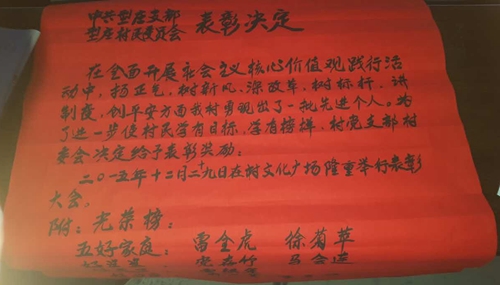 中共型店支部
型店村民委员会 表彰决定
在全面开展社会主义核心价值观践行活
动中，扬正气、树新风、深改革、树标杆、讲
制度，创平安方面我村勇现出了一批先进个人。为
了进一步使村民学有目标，学有榜样，村党支部村
委会决定给予表彰奖励：
二〇一五年十二月二十九日在村文化广场隆重举行表彰
大会。
附：光荣榜：
五好家庭： 雷全虎 徐菊苹